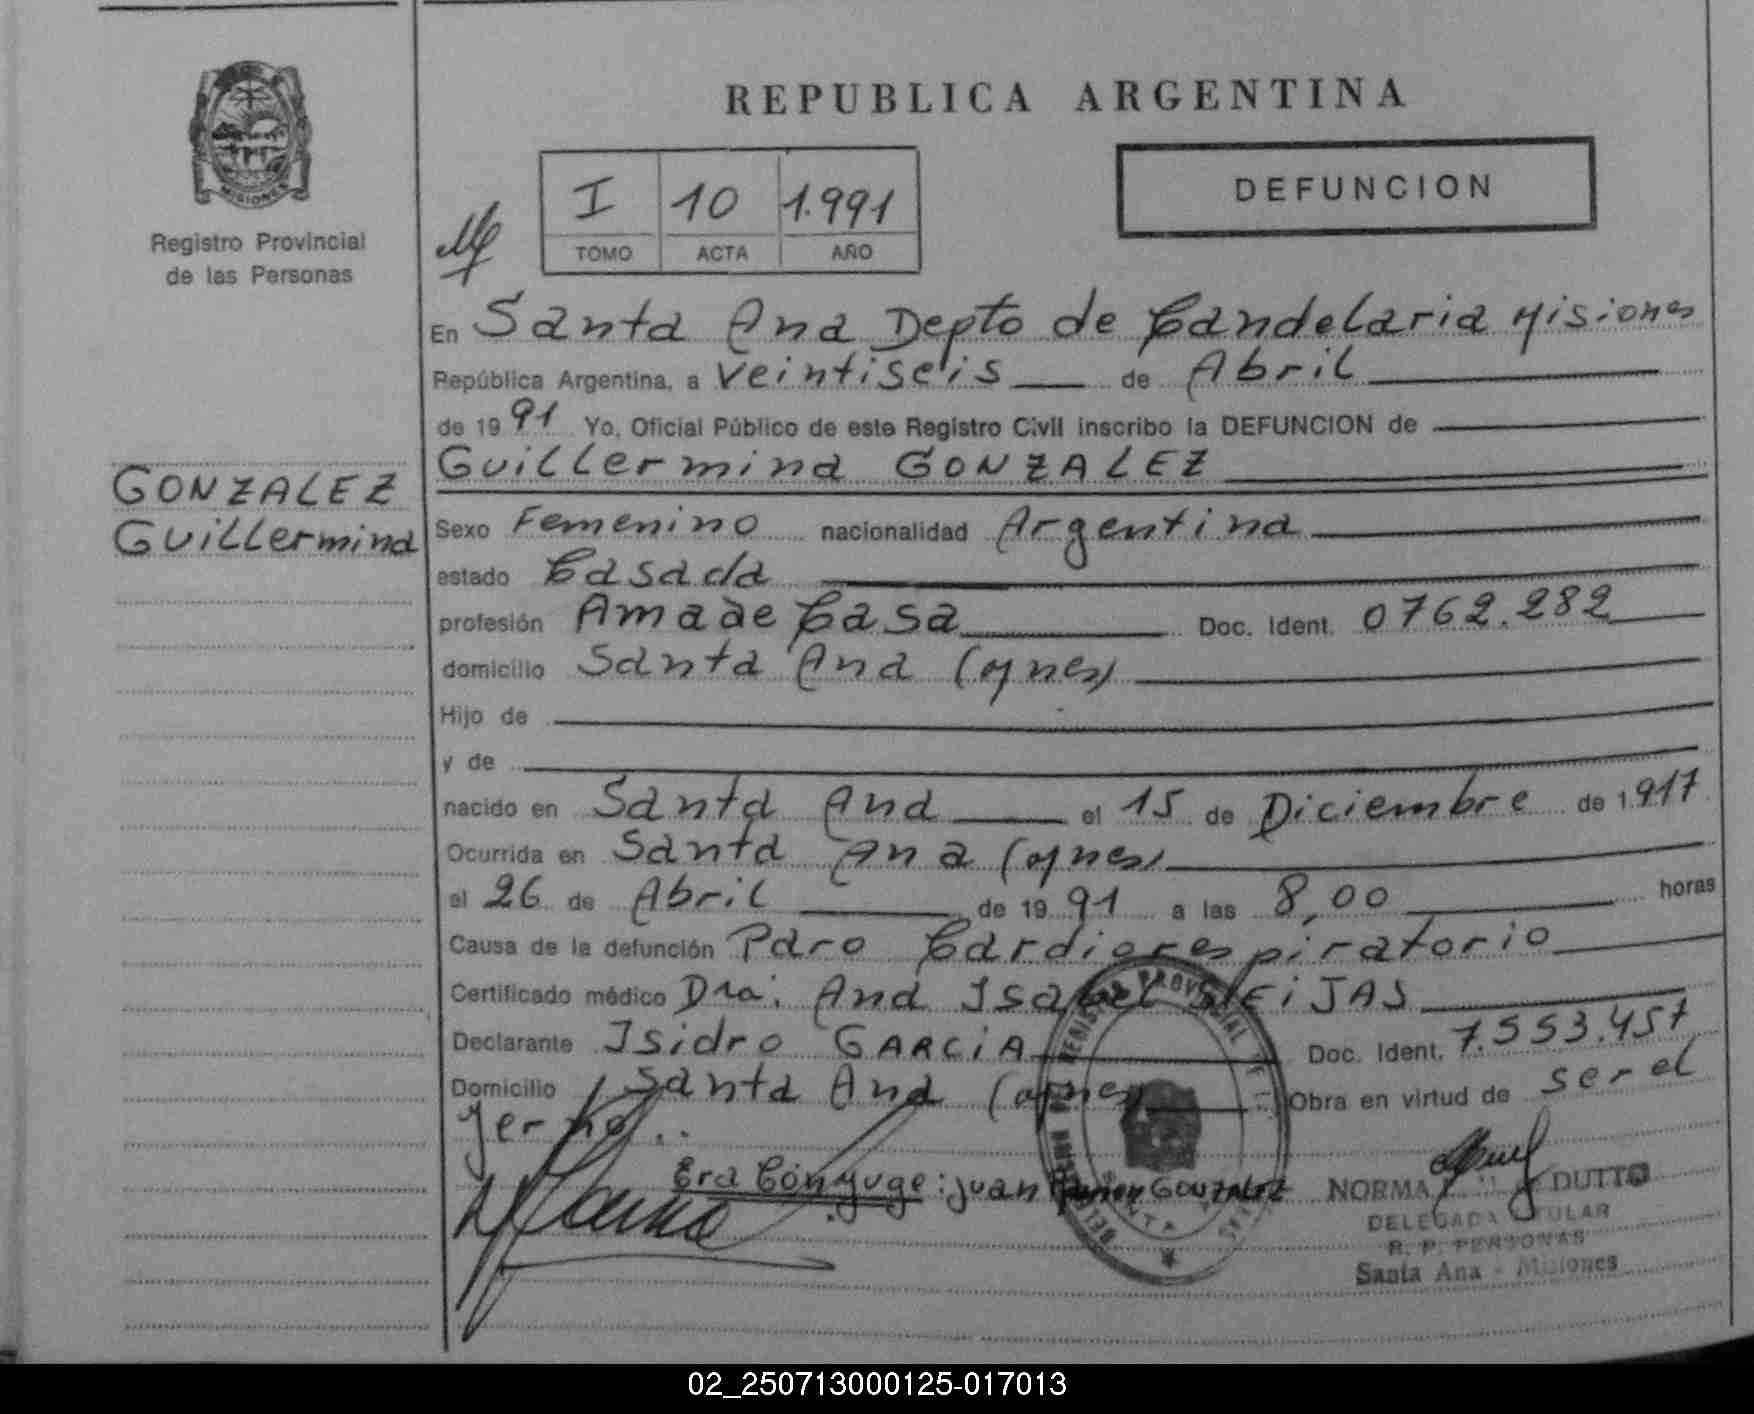 REPUBLICA ARGENTINA
MISIONES
Registro Provincial
de las Personas
I 10 1.991
TOMO ACTA AÑO
DEFUNCION
En Santa Ana Depto de Candelaria Misiones
República Argentina, a veintiseis de Abril
de 1991 Yo, Oficial Público de este Registro Civil inscribo la DEFUNCION de
Guillermina GONZALEZ
GONZALEZ
Guillermina
Sexo Femenino nacionalidad Argentina
estado Casada
profesión Ama de Casa Doc. Ident. 0762.282
domicilio Santa Ana (Mnes)
Hijo de
y de
nacido en Santa Ana el 15 de Diciembre de 1917
Ocurrida en Santa Ana (Mnes)
el 26 de Abril de 1991 a las 8,00 horas
Causa de la defunción Paro Cardiorespiratorio
Certificado médico Dra. Ana Isabel SEIJAS
Declarante Isidro GARCIA Doc. Ident. 7.553.457
Domicilio Santa Ana (Mnes) Obra en virtud de ser el
Yerno..
Era Cónyuge: Juan GONZALEZ
NORMA DUTTO
DELEGADA TITULAR
R. P. PERSONAS
Santa Ana - Misiones
02_250713000125-017013